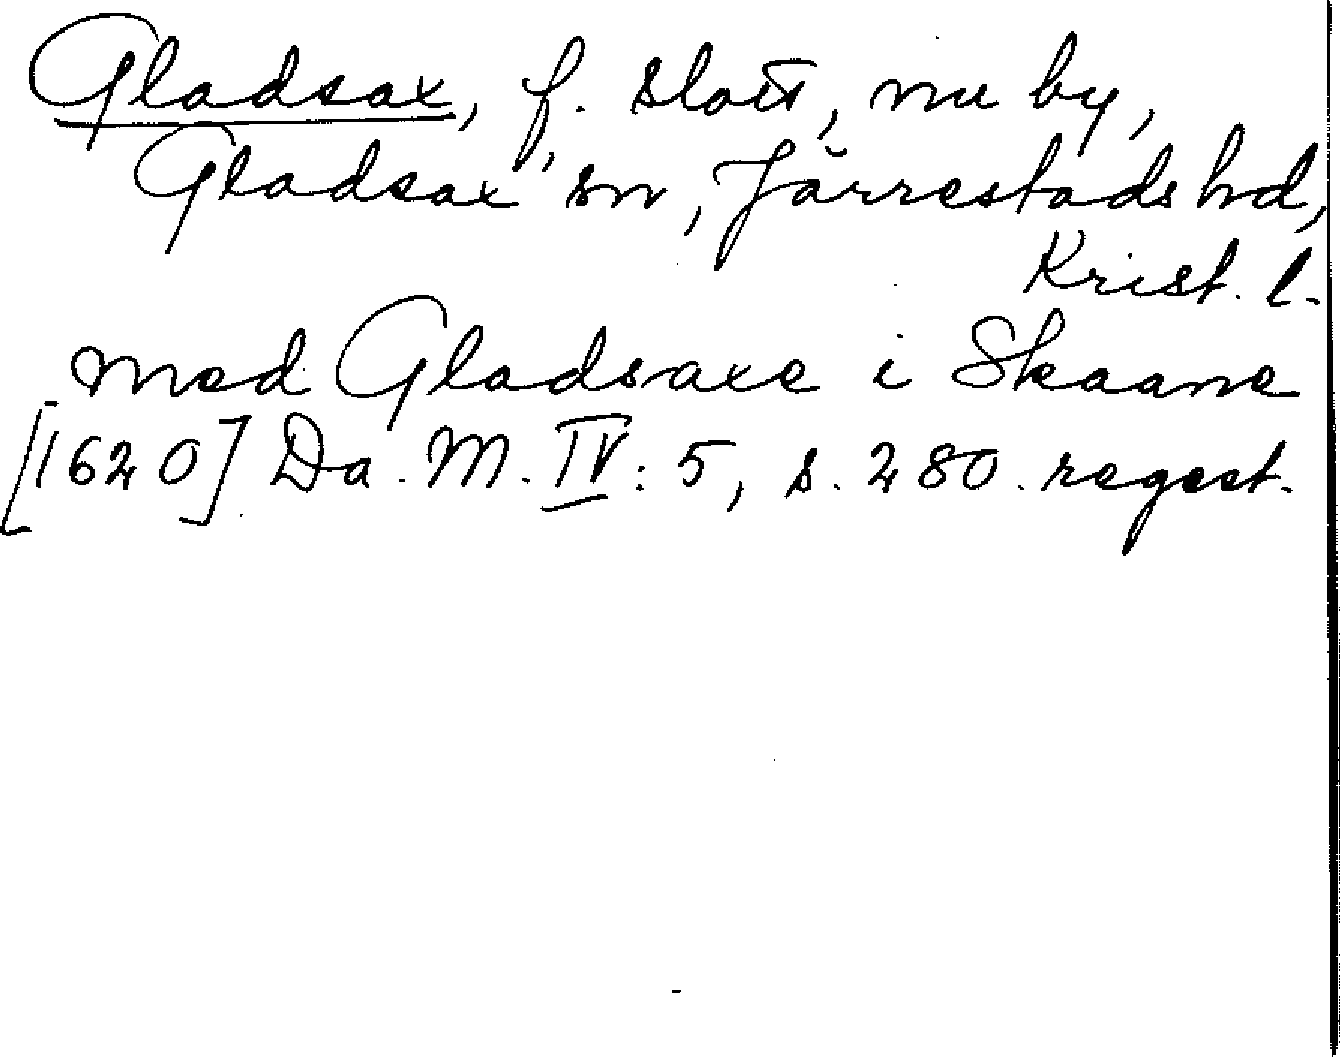 Gladsax, f. slott, nu by,
Gladsax sn, Järrestads hd,
Krist. l.
med Gladsaxe i Skaane
[1620] Da. M. IV: 5, s. 280. regest.